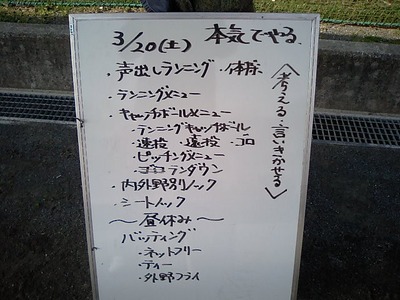 3/20(土) 本気でやる。
・声出しランニング・体操
・ランニングメニュー
・キャッチボールメニュー
・ランニングキャッチボール
・速投・遠投・ゴロ
・ピッチングメニュー
・ランダウン
・内外野別ノック
・シートノック
〜昼休み〜
バッティング
・ネットフリー
・ティー
・外野フライ
＜考える・言いきかせる＞